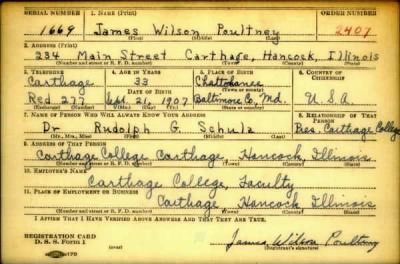 SERIAL NUMBER 1. NAME (Print) ORDER NUMBER
1669 James Wilson Poultney 2407
(First) (Middle) (Last)
2. ADDRESS (Print)
234 Main Street Carthage, Hancock, Illinois
(Number and street or R. F. D. number) (Town) (County) (State)
3. TELEPHONE 4. AGE IN YEARS 5. PLACE OF BIRTH 6. COUNTRY OF CITIZENSHIP
Carthage 33 Chattolanee
DATE OF BIRTH (Town or county)
Red 277 Sept. 21, 1907 Baltimore Co., Md. U.S.A
(Mo.) (Day) (Yr.) (State or country)
7. NAME OF PERSON WHO WILL ALWAYS KNOW YOUR ADDRESS 8. RELATIONSHIP OF THAT PERSON
Dr. Rudolph G. Schulz Pres. Carthage College
(Mr., Mrs., Miss) (First) (Middle) (Last)
9. ADDRESS OF THAT PERSON
Carthage College Carthage, Hancock, Illinois.
(Number and street or R. F. D. number) (Town) (County) (State)
10. EMPLOYER'S NAME
Carthage College, Faculty
11. PLACE OF EMPLOYMENT OR BUSINESS
Carthage Hancock Illinois
(Number and street or R. F. D. number) (Town) (County) (State)
I AFFIRM THAT I HAVE VERIFIED ABOVE ANSWERS AND THAT THEY ARE TRUE.
REGISTRATION CARD
D. S. S. Form 1 (over) James Wilson Poultney
(Registrant's signature)